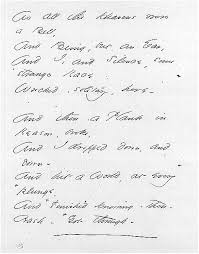 As all the Heavens were
a Bell,
And Being, but an Ear,
And I, and Silence, some
strange Race
Wrecked, solitary, here -
And then a Plank in
Reason, broke,
And I dropped down, and
down -
And hit a World, at every
plunge,
And Finished knowing - then -